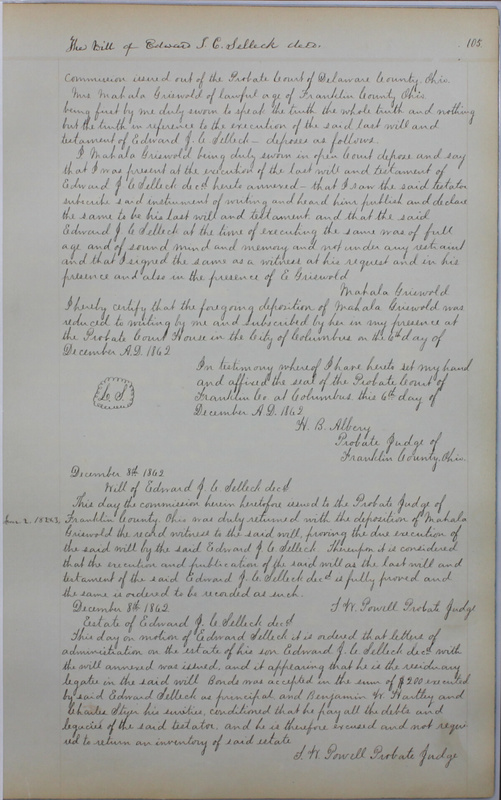 The Will of Edward J. C. Selleck decd.
105
Commission issued out of the Probate Court of Delaware County, Ohio.
Mrs Mahala Griswold of lawful age of Franklin County Ohio
being first by me duly sworn to speak the truth the whole truth and nothing
but the truth in reference to the execution of the said last will and
testament of Edward J. C. Selleck - deposes as follows.
I Mahala Griswold being duly sworn in open Court depose and say
that I was present at the execution of the last will and testament of
Edward J C Selleck decd hereto annexed - that I saw the said testator
subscribe said instrument of writing and heard him publish and declare
the same to be his last will and testament, and that the said
Edward J. C. Selleck at the time of executing the same was of full
age and of sound mind and memory and not under any restraint
and that I signed the same as a witness at his request and in his
presence and also in the presence of E Griswold
Mahala Griswold
I hereby certify that the foregoing deposition of Mahala Griswold was
reduced to writing by me and subscribed by her in my presence at
the Probate Court House in the City of Columbus on the 6th day of
December A.D. 1862
In testimony whereof I have hereto set my hand
and affixed the seal of the Probate Court of
L. S.
Franklin Co. at Columbus this 6th day of
December A.D. 1862
H. B. Albery
Probate Judge of
Franklin County, Ohio.
December 8th 1862
Will of Edward J. C. Selleck decd
This day the commission herein heretofore issued to the Probate Judge of
Franklin County, Ohio was duly returned with the deposition of Mahala
Griswold the record witness to the said will, proving the due execution of
the said will by the said Edward J. C. Selleck. Thereupon it is considered
that the execution and publication of the said will as the last will and
testament of the said Edward J. C. Selleck decd is fully proved and
the same is ordered to be recorded as such.
December 8th 1862. T. W. Powell Probate Judge
Estate of Edward J. C. Selleck decd
This day on motion of Edward Selleck it is ordered that letters of
administration on the estate of his son Edward J. C. Selleck decd with
the will annexed was issued, and it appearing that he is the residuary
legatee in the said will Bonds was accepted in the sum of $200 executed
by said Edward Selleck as principal and Benjamin W. Hartley and
Charles Styer his sureties, conditioned that he pay all the debts and
legacies of the said testator, and he is therefore excused and not requi
red to return an inventory of said estate
T. W. Powell Probate Judge